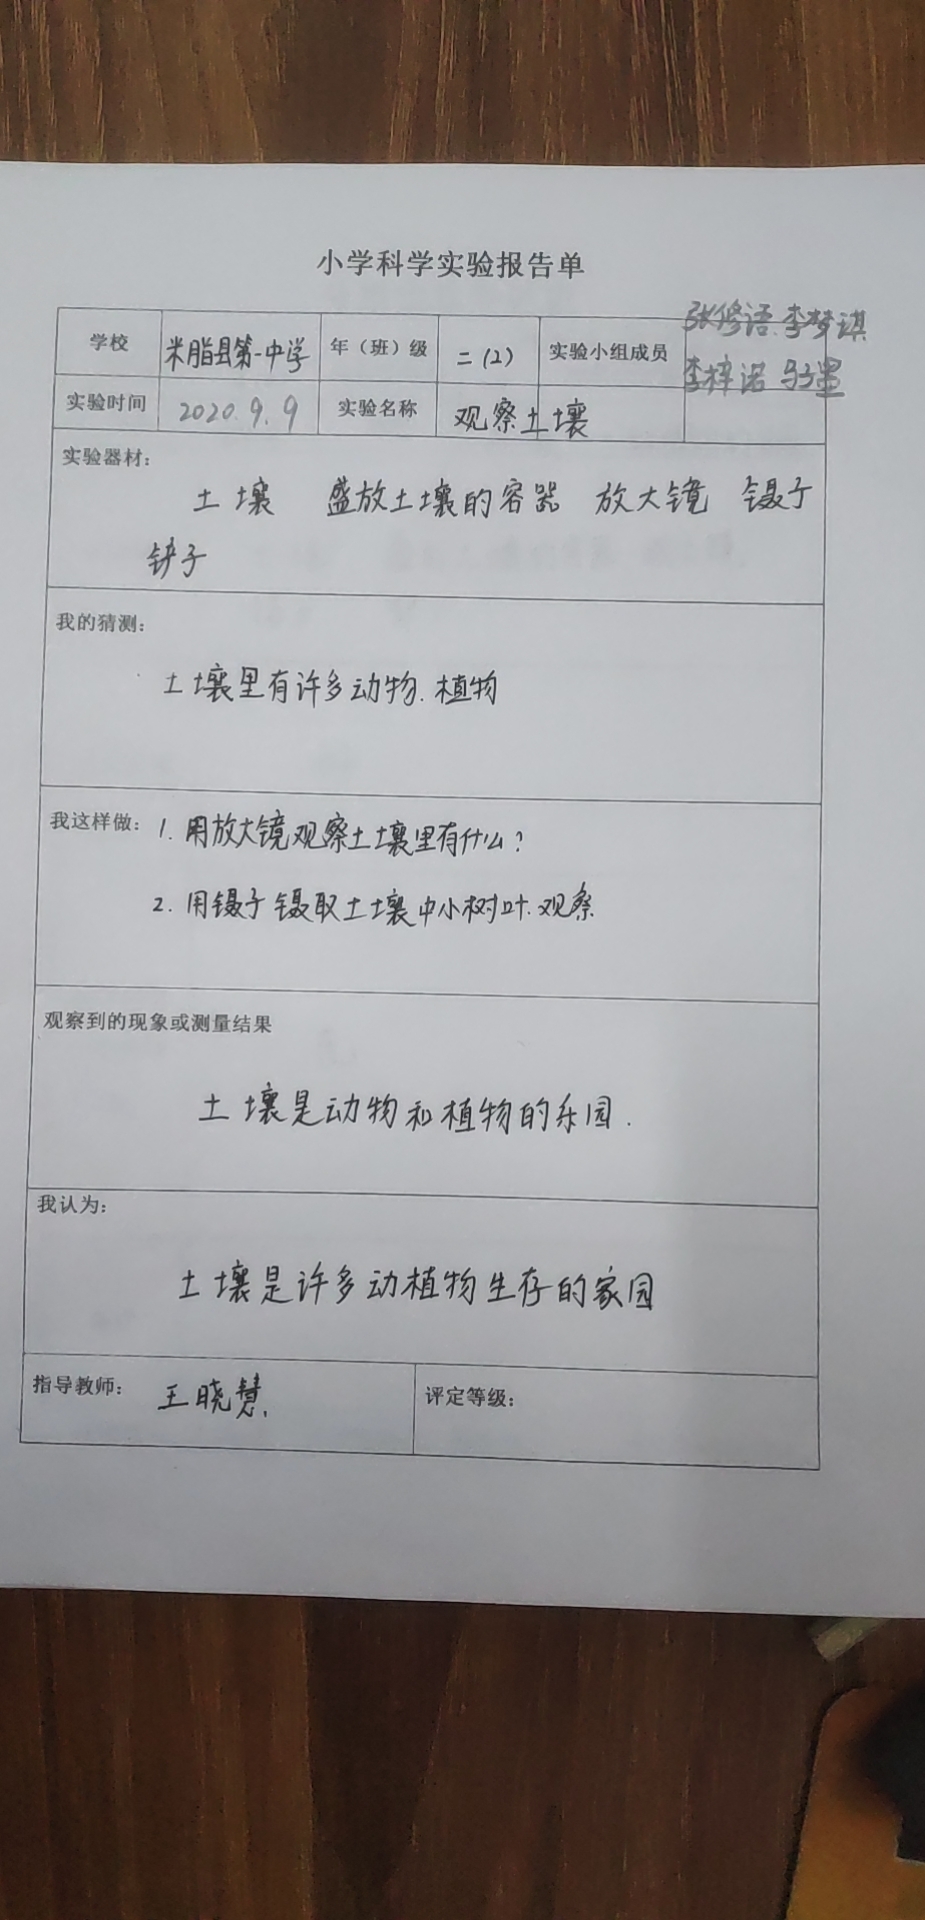 小学科学实验报告单
学校 米脂县第一中学 年（班）级 二（2） 实验小组成员 张修语 李梦琪
李梓诺 马子墨
实验时间 2020.9.9 实验名称 观察土壤
实验器材：
土壤 盛放土壤的容器 放大镜 镊子
铲子
我的猜测：
土壤里有许多动物.植物
我这样做： 1. 用放大镜观察土壤里有什么？
2. 用镊子镊取土壤中小树叶.观察
观察到的现象或测量结果
土壤是动物和植物的乐园.
我认为：
土壤是许多动植物生存的家园
指导教师： 王晓慧 评定等级：